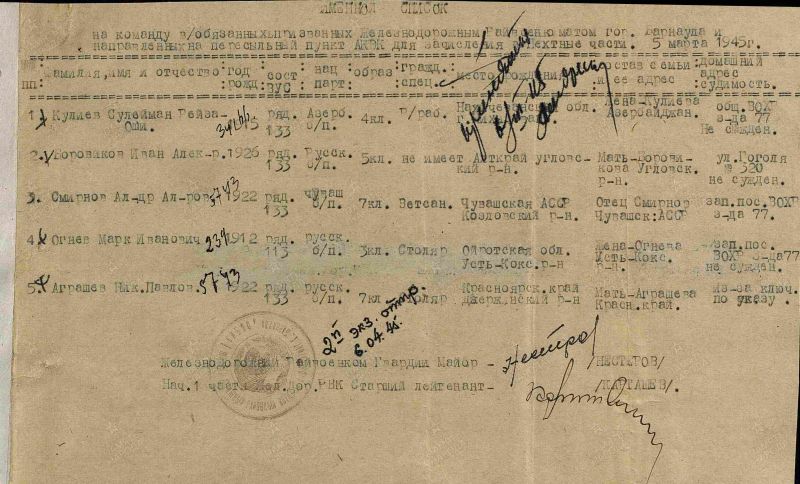 ИМЕННОЙ СПИСОК
на команду в/обязанных призванных Железнодорожным Райвоенкоматом гор. Барнаула и
направленных на пересыльный пункт для зачисления в части. 5 марта 1945г.
пп: Фамилия, имя и отчество: год рожд.: сост ВУС: нац парт.: образ: гражд. спец.: место рождения: состав семьи и ее адрес: домашний адрес судимость.
1. Кулиев Сулейман Рейза- ряд. Азерб. 4кл. Р/раб. обл. Жена-Кулиева общ. ВОХР
Оши. 133 б/п. Азербайджан. з-да 77
Не сужден.
2. Боровиков Иван Алек-р. 1926 ряд. Русск. 5кл. не имеет Алткрай угловс- Мать-Борови- ул.Гоголя
133 б/п. кий р-н. кова Угловск. № 320
р-н. не сужден.
3. Смирнов Ал-др Ал-ров 5743 1922 ряд. чуваш 7кл. Ветсан. Чувашская АССР Отец Смирнов зап.пос.ВОХР
133 б/п. Козловский р-н. Чувашск:АССР з-да 77.
4. Огнев Марк Иванович 1912 ряд. русск. 3кл. Столяр Ойротская обл. Жена-Огнева зап.пос.
113 б/п. Усть-Кокс.р-н Усть-Кокс. ВОХР з-да77
р-н. не сужден.
5. Аграшев Ник.Павлов. 5743 1922 ряд. русск. 7кл Столяр Красноярск.край Мать-Аграшева из-за ключ.
133 б/п. Дзержинский р-н Красн.край. по указу.
2й экз. отпр.
6.04.45.
Железнодорожный Райвоенком Гвардии Майор - /НЕСТЕРОВ/
Нач.1 части Жел.Дор.РВК Старший лейтенант- /КАРТАШЕВ/.